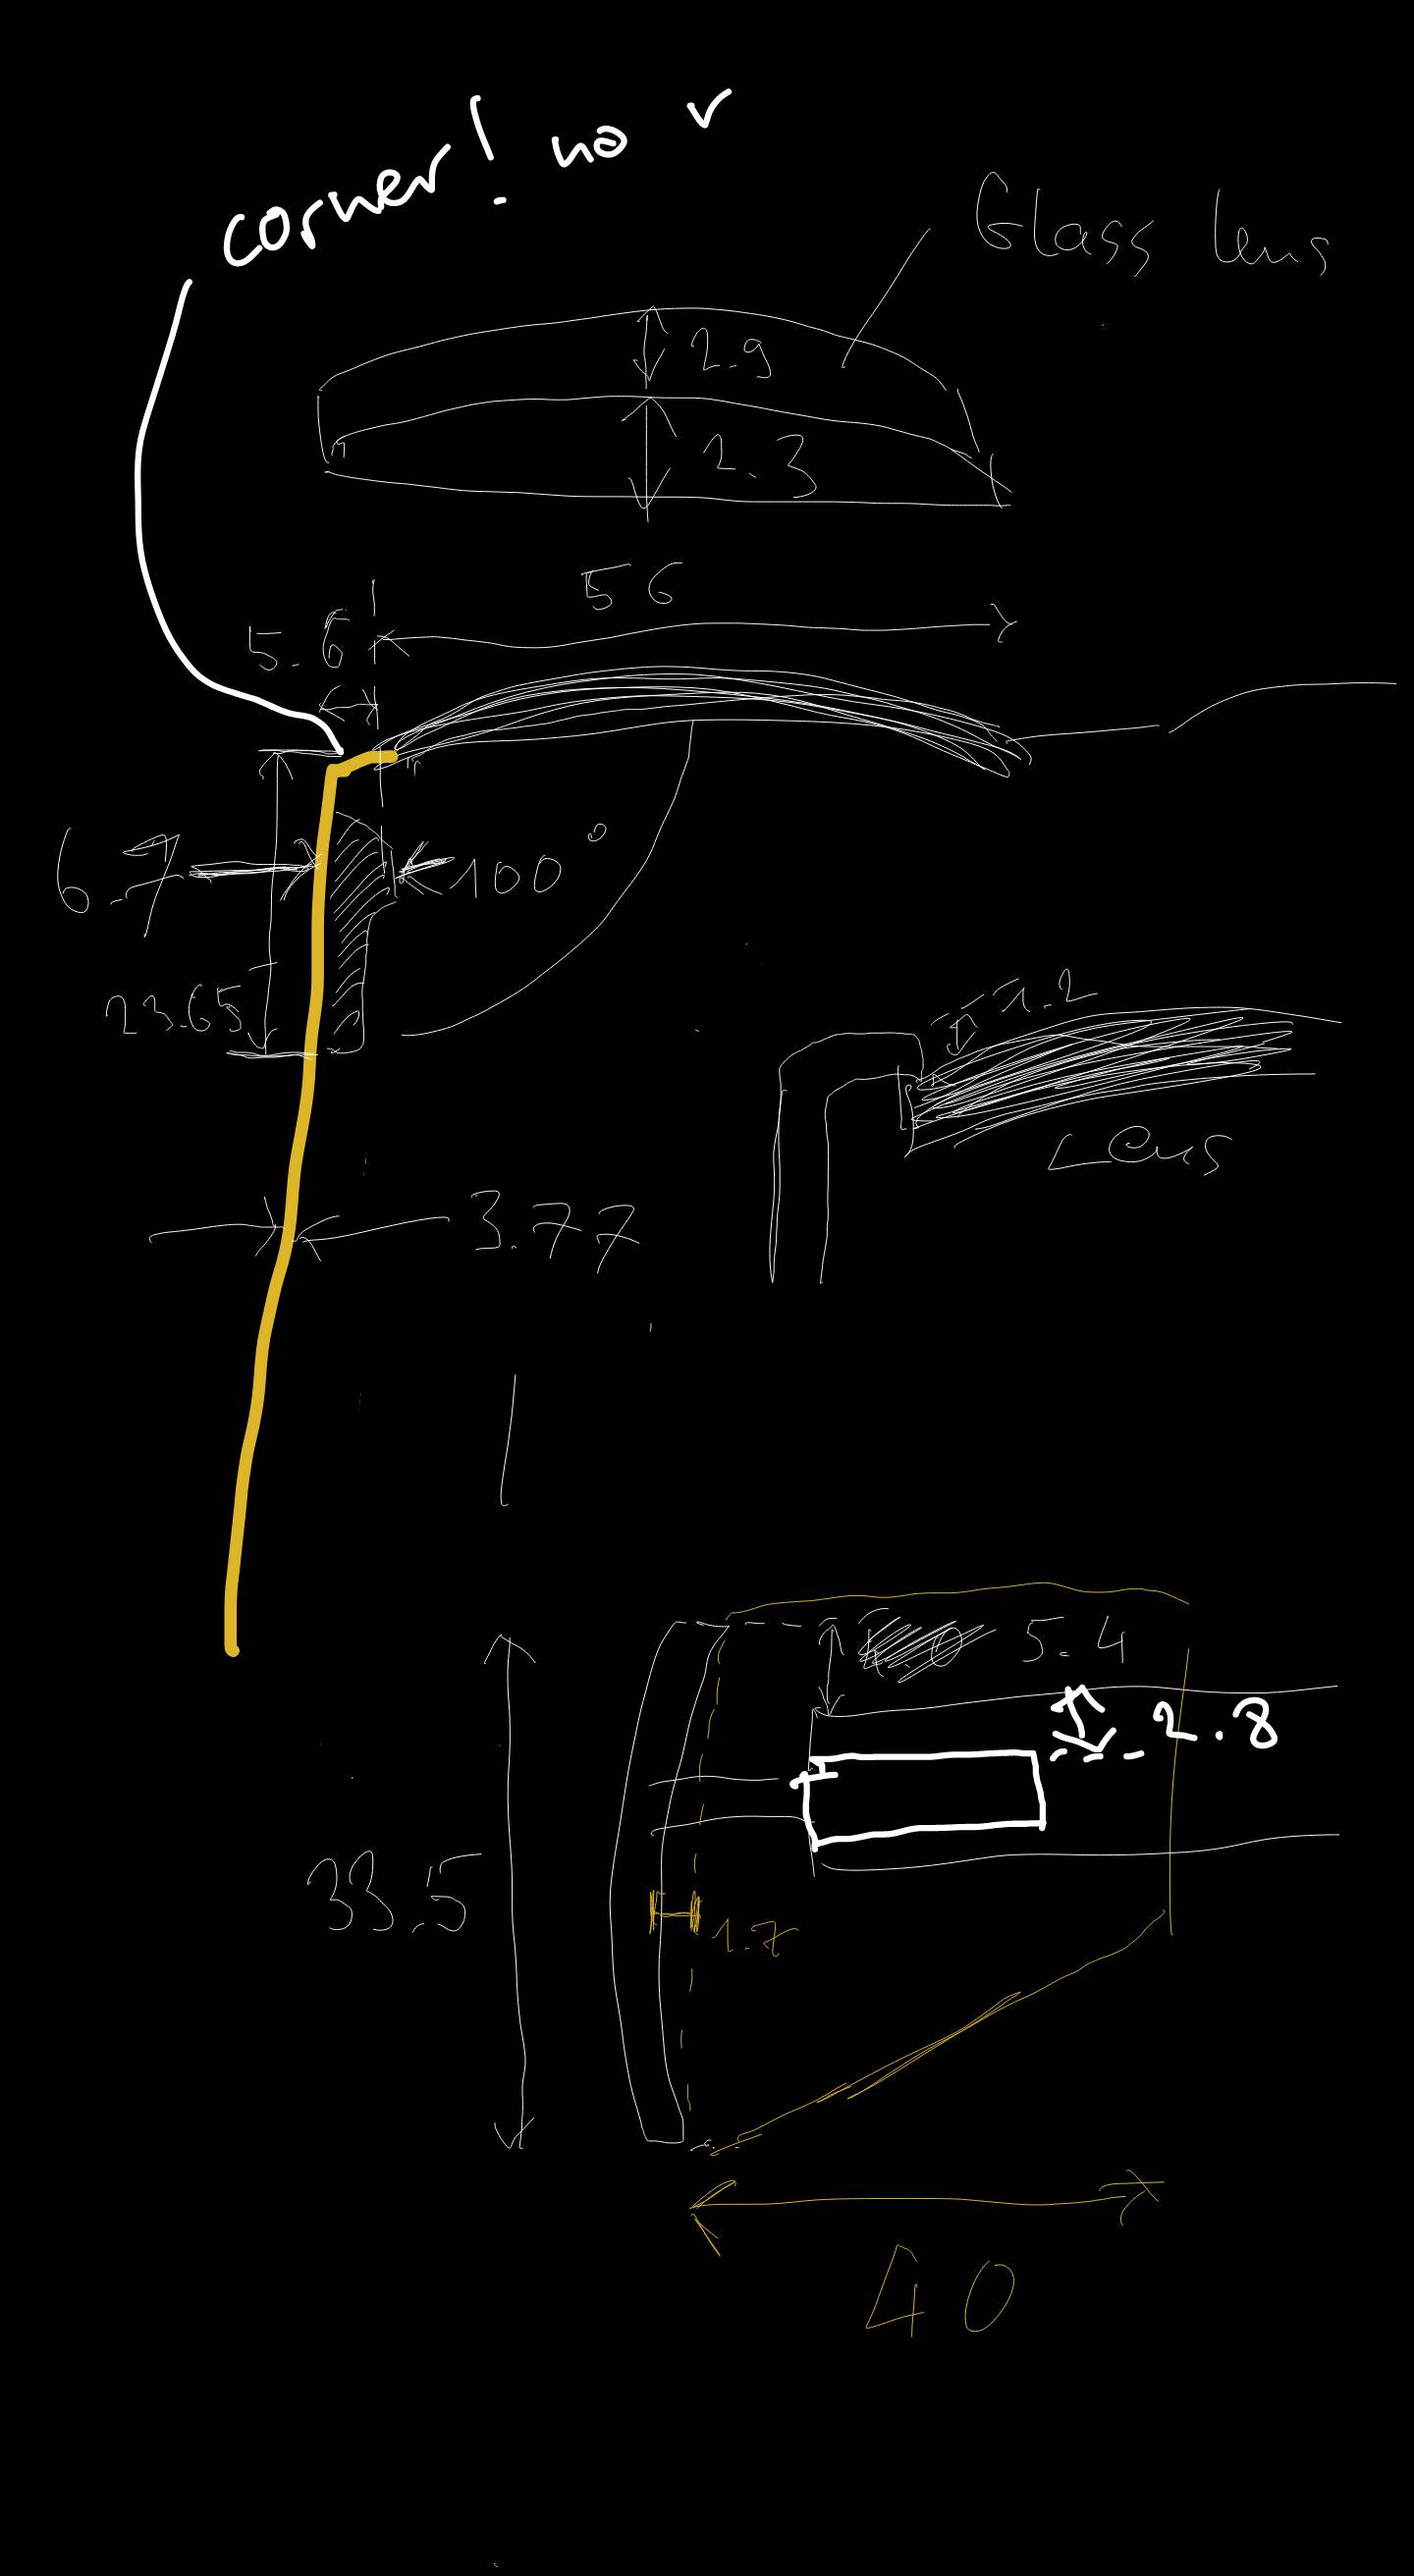 corner! no r
Glass lens
2.9
2.3
56
5.6
6.7
100°
23.65
1.2
Lens
3.77
5.4
2.8
33.5
1.7
40